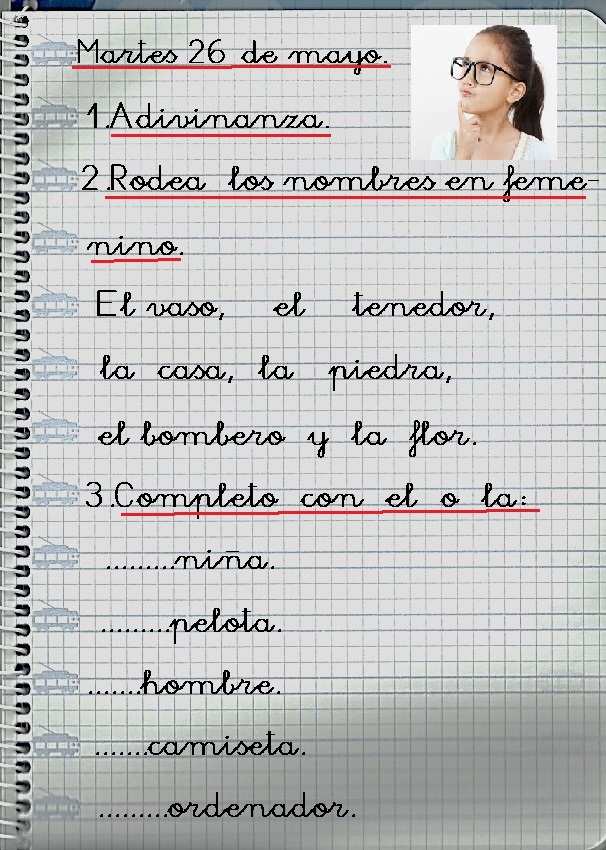 Martes 26 de mayo.
1.Adivinanza.
2.Rodea los nombres en feme-
nino.
El vaso, el tenedor,
la casa, la piedra,
el bombero y la flor.
3.Completo con el o la:
.........niña.
.........pelota.
.......hombre.
.......camiseta.
.........ordenador.